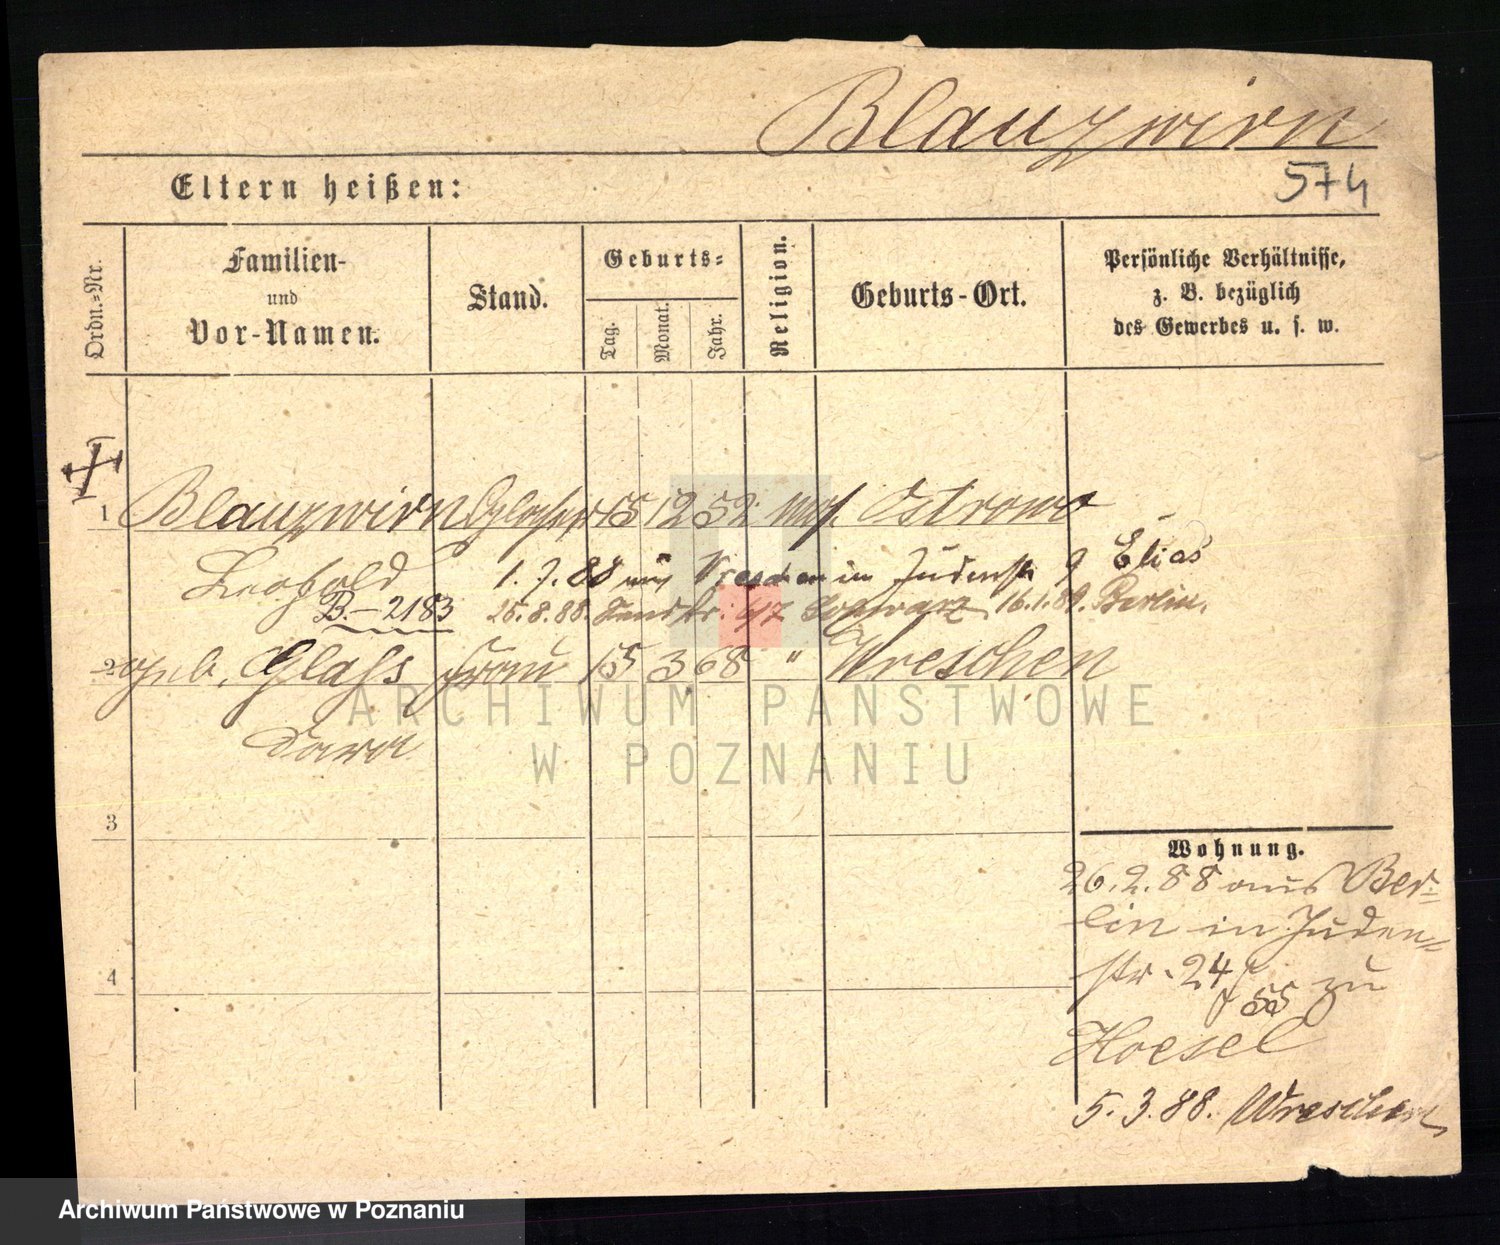 Blauzwirn
574
Eltern heißen:
Ordn.-Nr.
Familien-
und
Vor-Namen.
Stand.
Geburts-
Tag.
Monat.
Jahr.
Religion.
Geburts-Ort.
Persönliche Verhältnisse,
z. B. bezüglich
des Gewerbes u. s. w.
1 Blauzwirn Glaser 15 12 52 mos. Ostrowo
Leopold 1.7.88 aus Wreschen in Judenstr 9 Elias
B.-2183 25.8.88. 47 Schwarz 16.1.89. Berlin.
2 geb. Glass Frau 15 3 68 " Wreschen
3
4
Wohnung.
26.2.88 aus Ber-
lin in Juden-
str. 24/55 zu
Hoesel
5.3.88. Wreschen
ARCHIWUM PAŃSTWOWE
W POZNANIU
Archiwum Państwowe w Poznaniu